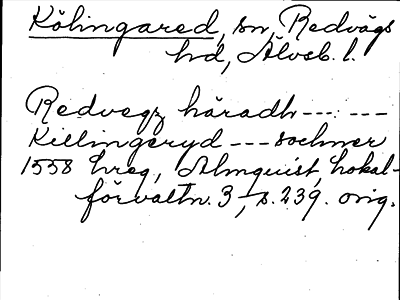 Kölingared, sn, Redvägs
hd, Älvsb. l.
Redvegz häradh --- ---
Killingeryd --- sochner
1558 hreg, Almquist, Lokal-
förvaltn. 3, s. 239. orig.